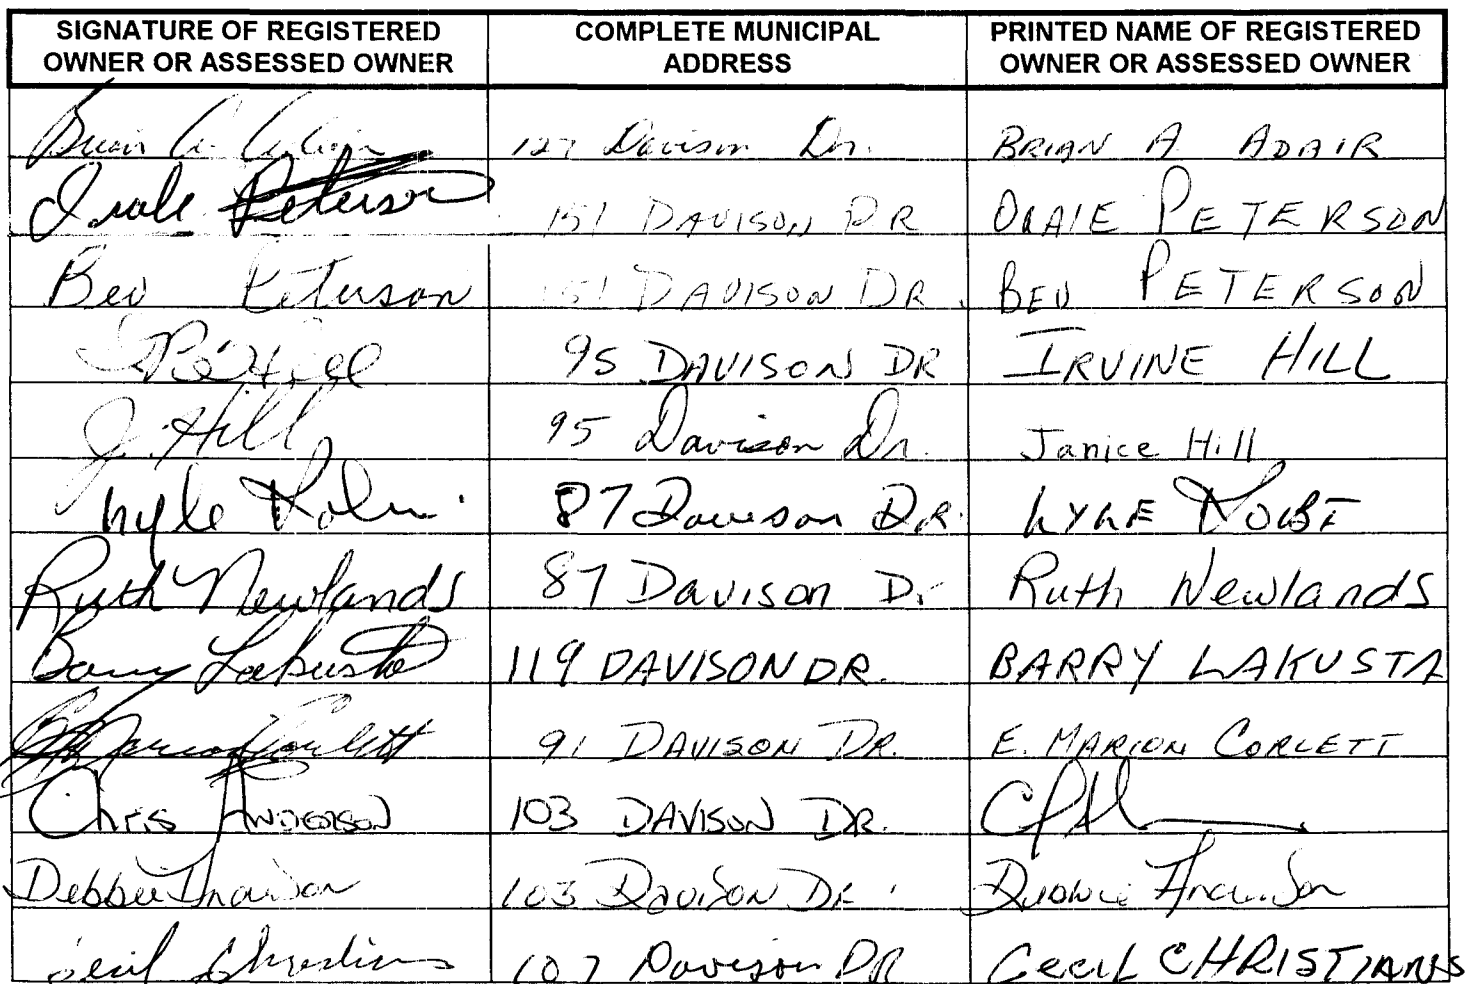 SIGNATURE OF REGISTERED OWNER OR ASSESSED OWNER | COMPLETE MUNICIPAL ADDRESS | PRINTED NAME OF REGISTERED OWNER OR ASSESSED OWNER
Brian A. Adair 127 Davison Dr. BRIAN A ADAIR
Peterson 151 DAVISON DR PETERSON
Bev Peterson 151 DAVISON DR. BEV PETERSON
Hill 95 DAVISON DR IRVINE HILL
J. Hill 95 Davison Dr. Janice Hill
Lyle 87 Davison DR. LYLE
Ruth Newlands 87 Davison Dr Ruth Newlands
Barry Lakusta 119 DAVISON DR. BARRY LAKUSTA
E. Marion Corlett 91 DAVISON DR. E. MARION CORLETT
CHRIS ANDERSON 103 DAVISON DR.
Debbie Anderson 103 DAVISON DR Debbie Anderson
Cecil Christians 107 Davison DR Cecil CHRISTIANS